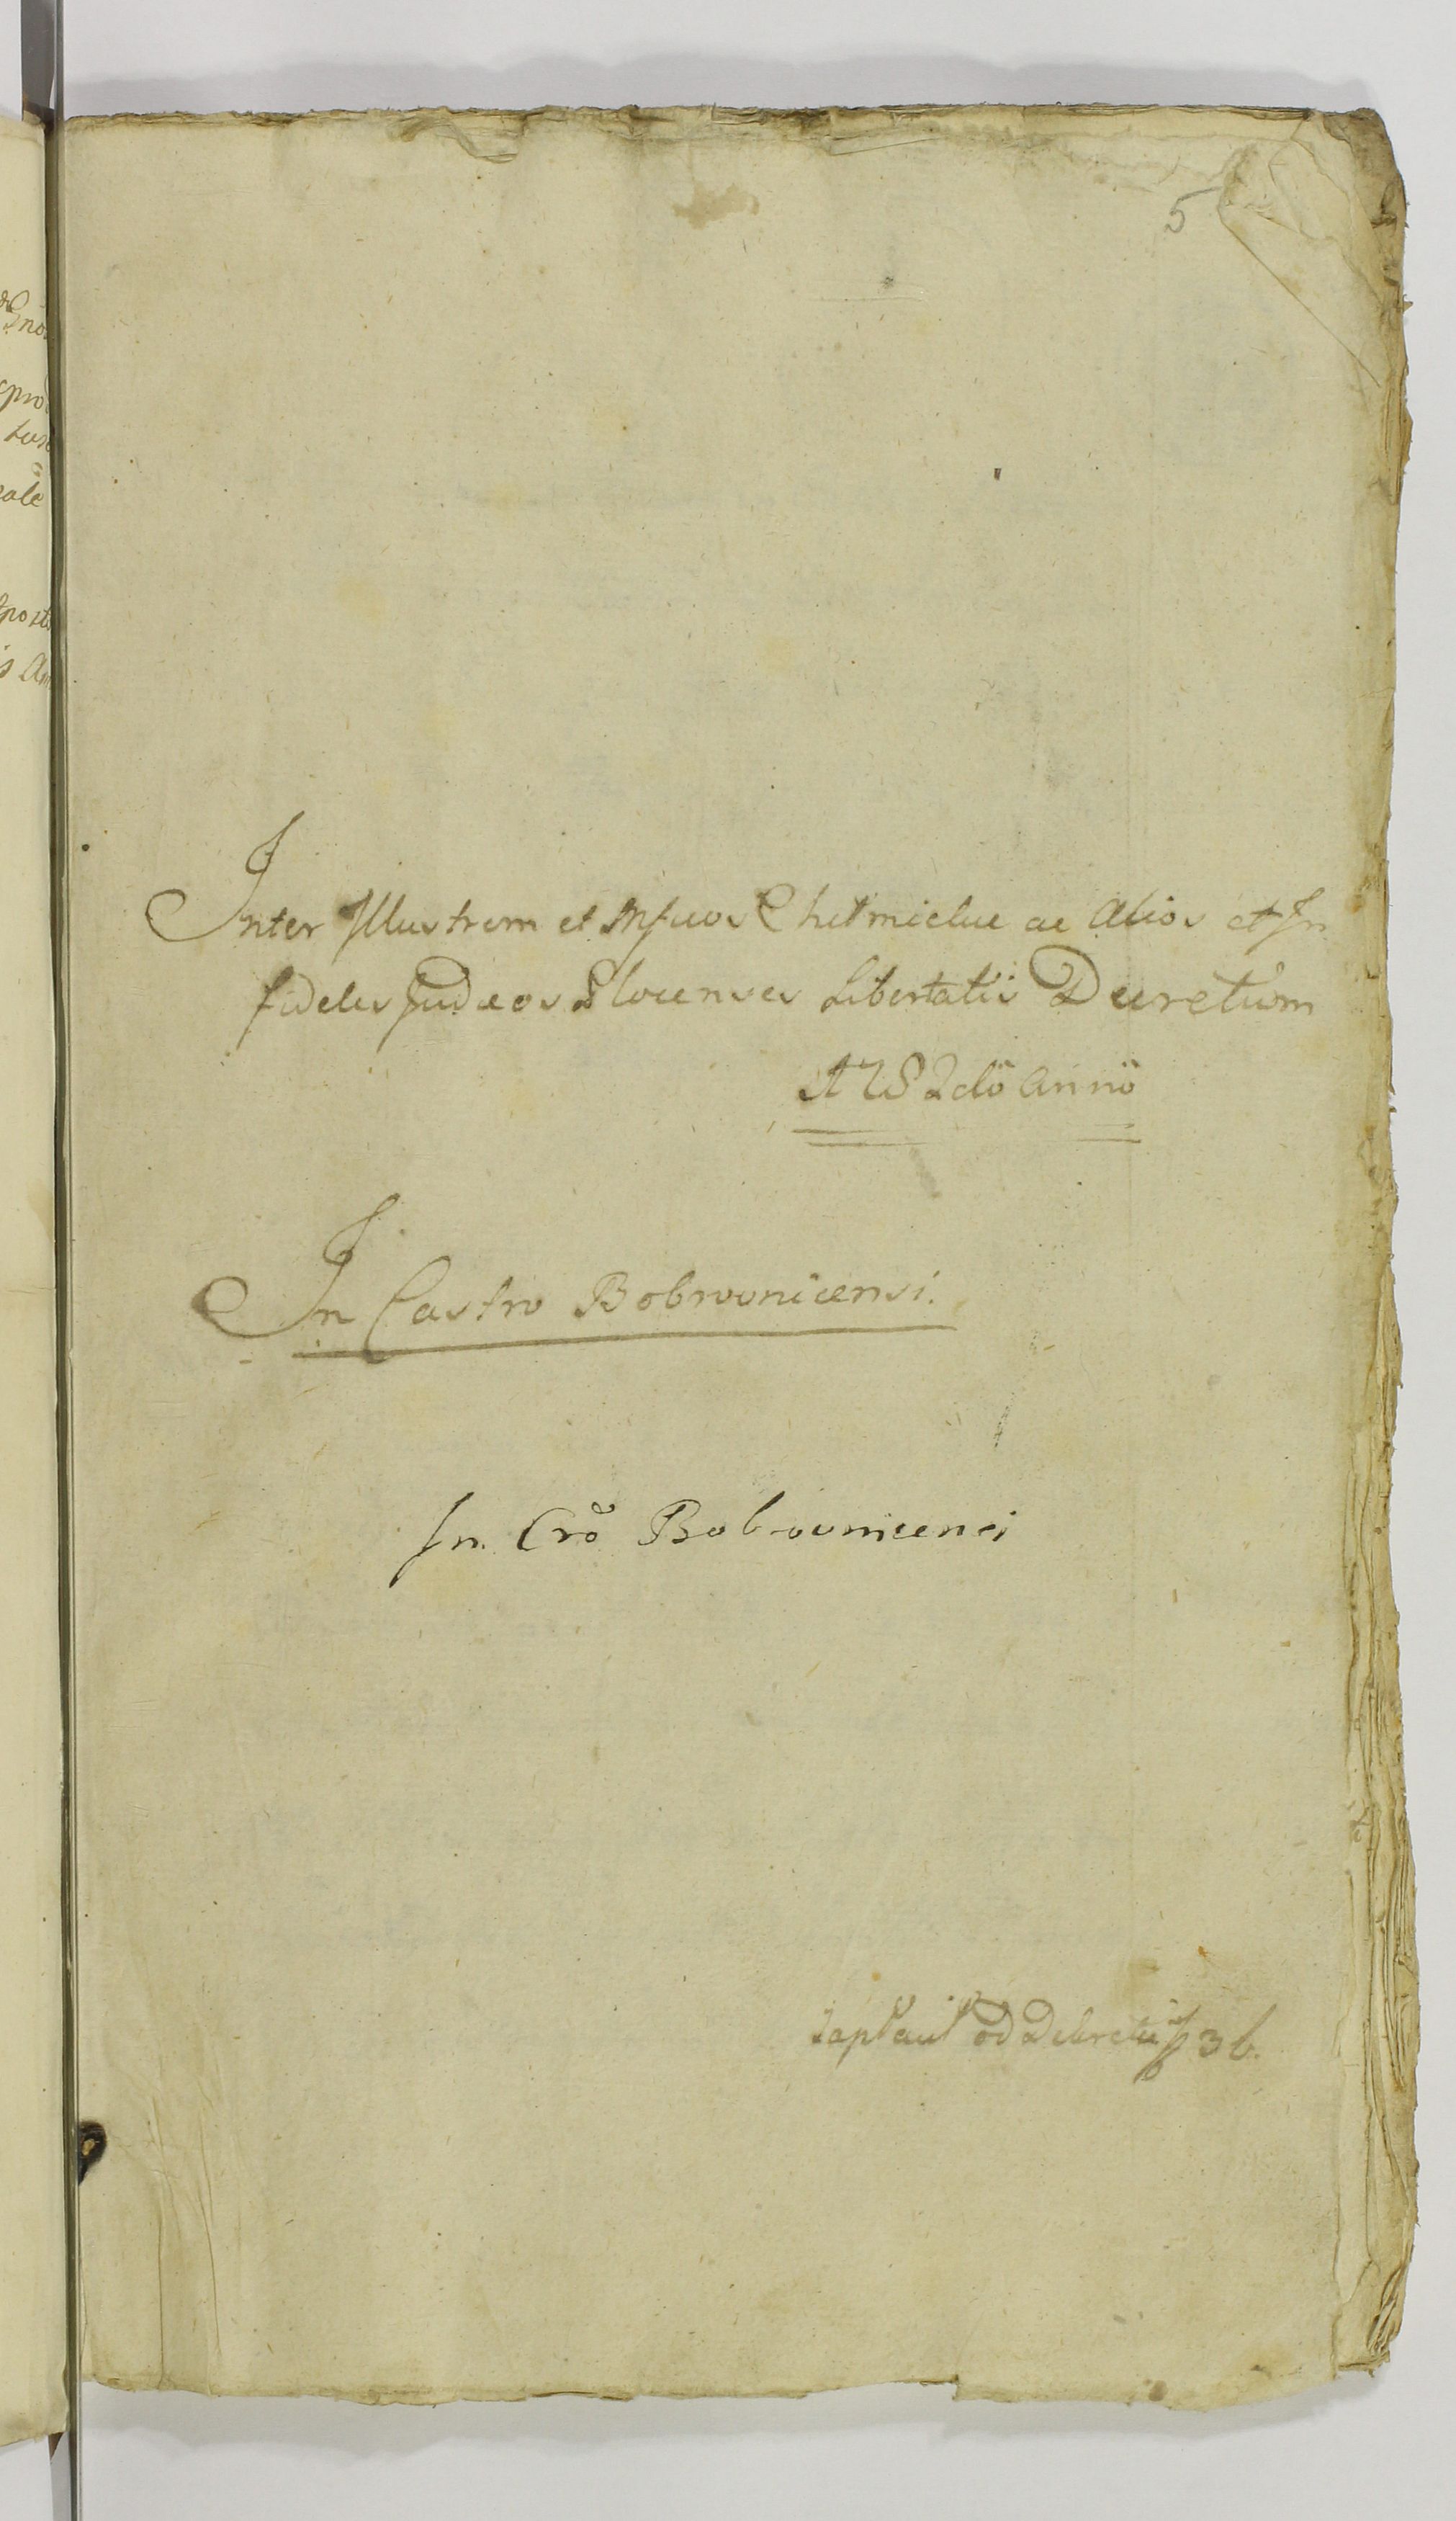 5
Inter Illustrem et Mfcos Chełmickie ac Alios et In
fideles Judæos Plocenses Libertatis Decretum
A 1782dö Annö
In Castro Bobrovnicensi.
In Crõ Bobrovnicensi
Zapłacił od Dekretu 36.